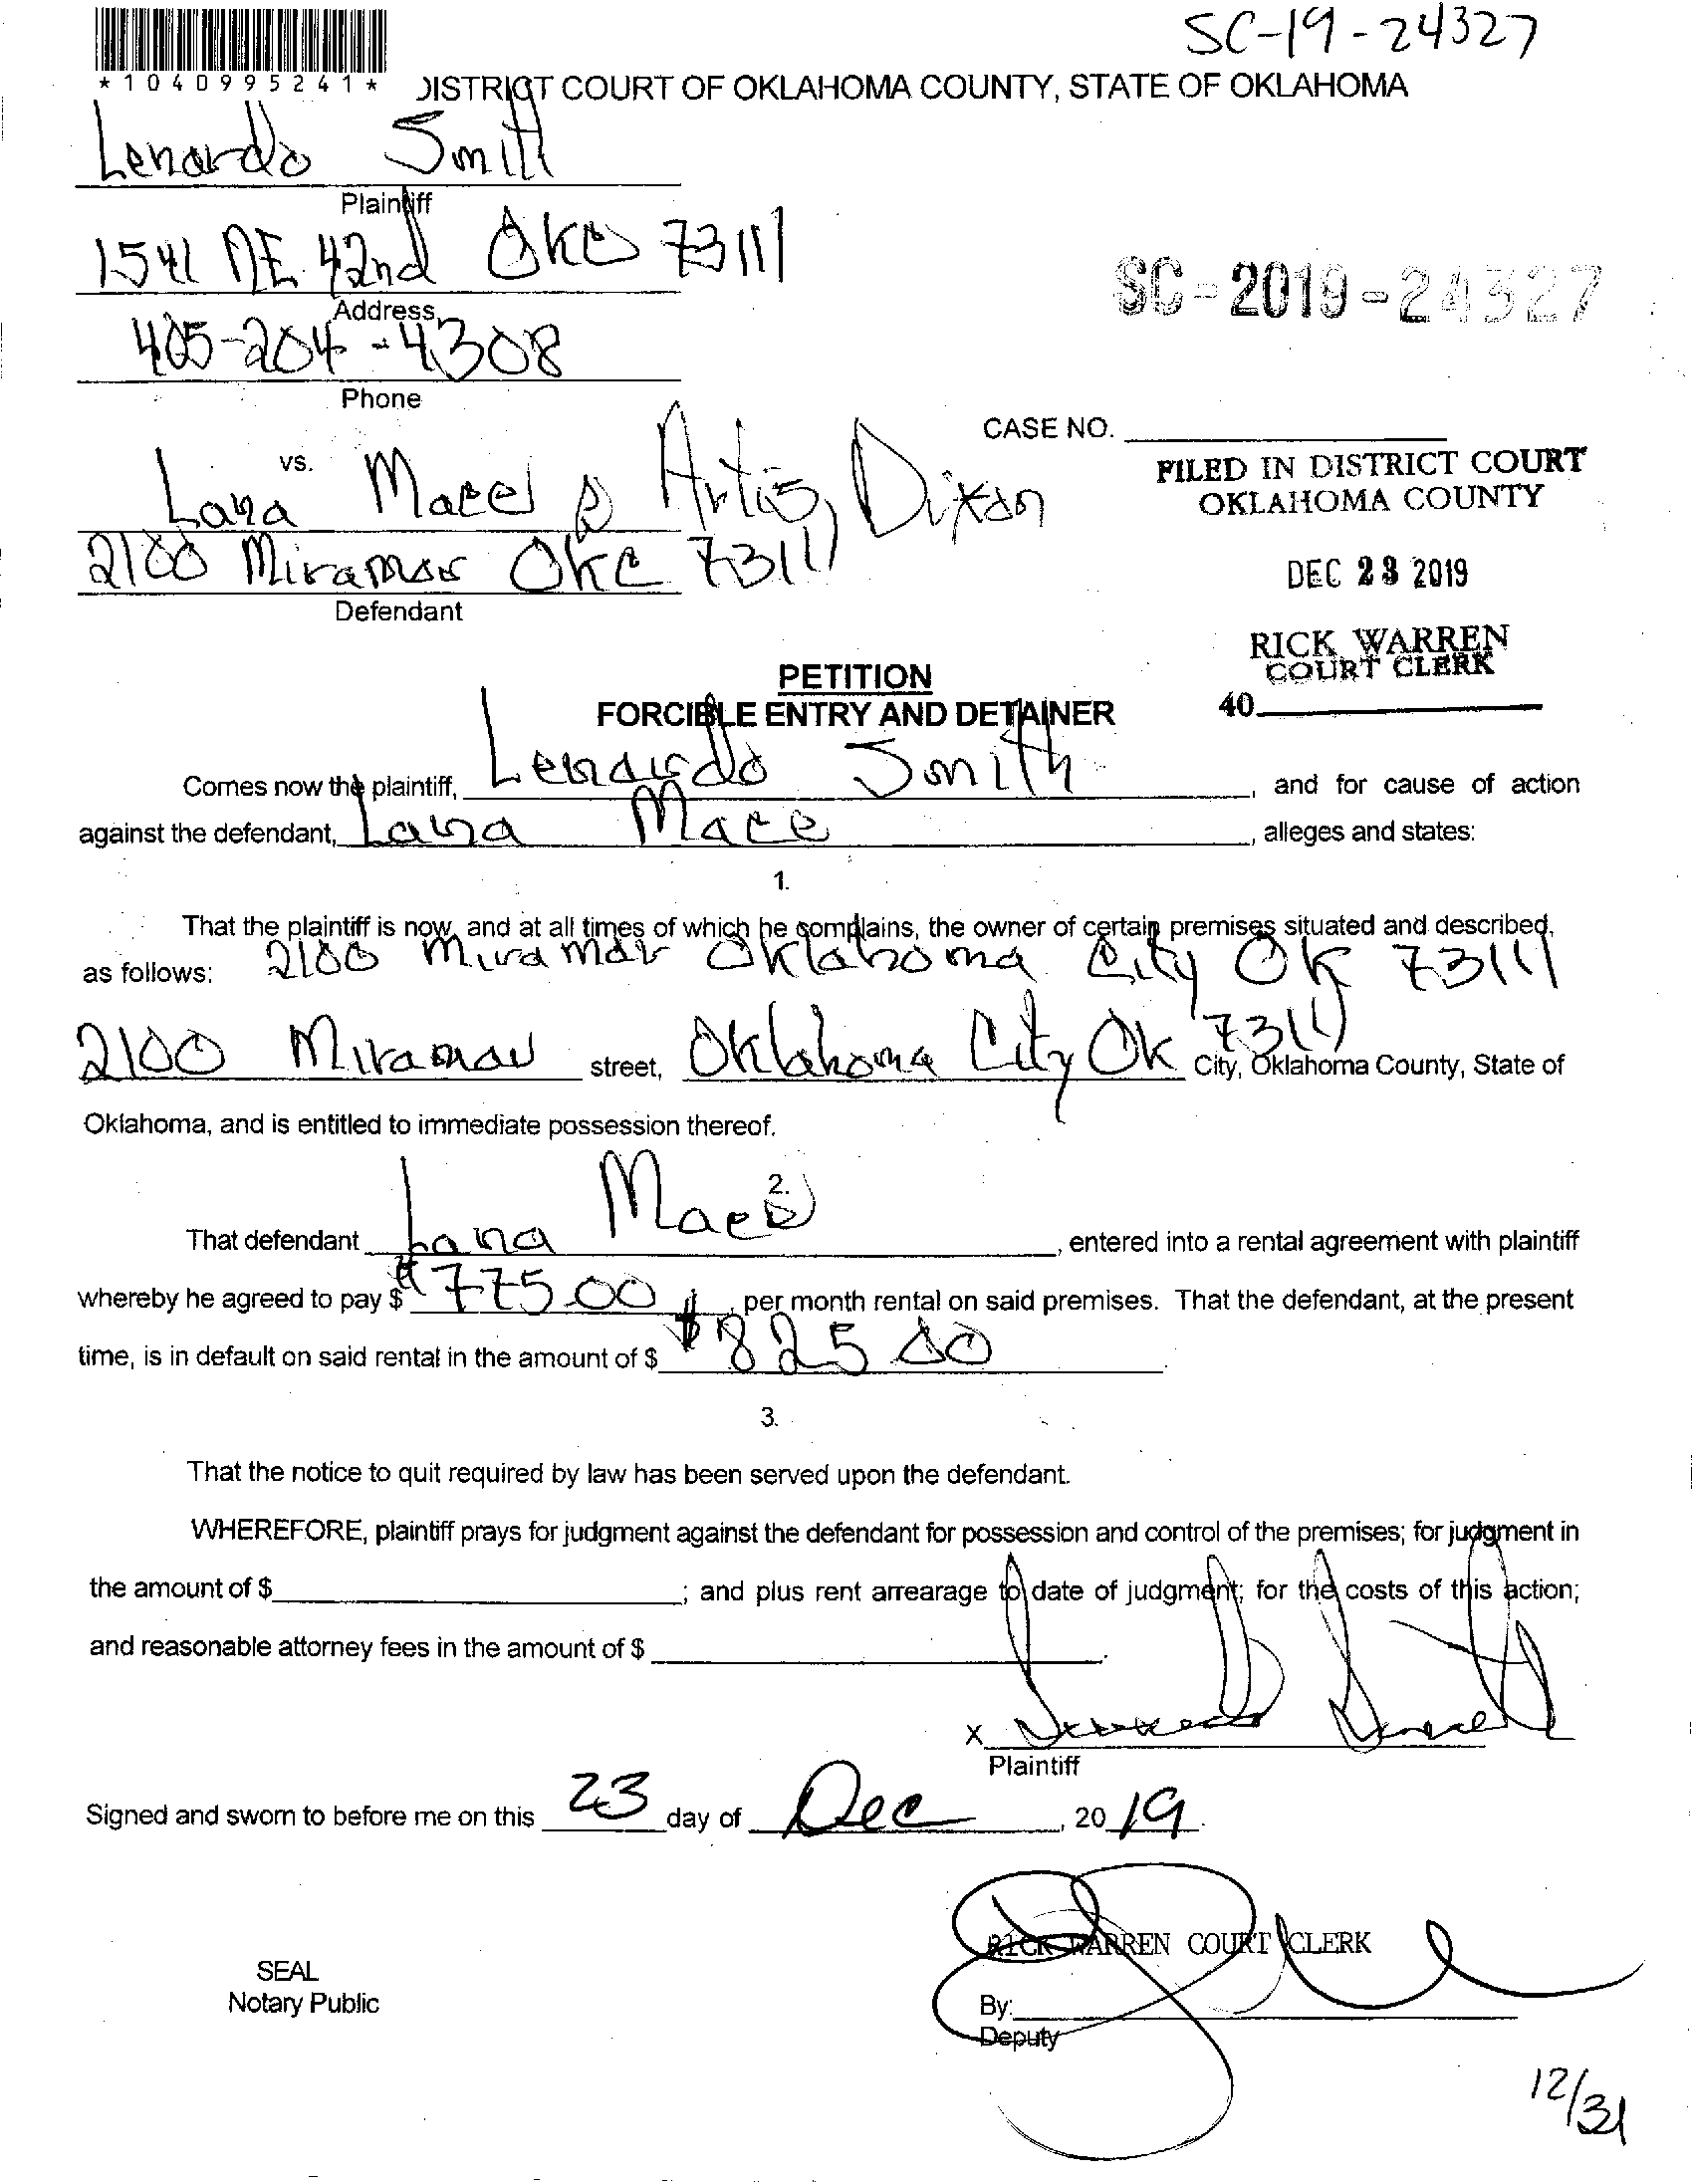 SC-19-24327
*1040995241*
DISTRICT COURT OF OKLAHOMA COUNTY, STATE OF OKLAHOMA
Lenardo Smith
Plaintiff
1541 NE 42nd OKC 73111
Address
SC-2019-24327
405-204-4308
Phone
CASE NO.
vs.
Lana Mace & Artis, Dixon
FILED IN DISTRICT COURT
OKLAHOMA COUNTY
2100 Miramar OKC 73111
Defendant
DEC 23 2019
RICK WARREN
COURT CLERK
40
PETITION
FORCIBLE ENTRY AND DETAINER
Comes now the plaintiff, Lenardo Smith, and for cause of action
against the defendant, Lana Mace, alleges and states:
1.
That the plaintiff is now, and at all times of which he complains, the owner of certain premises situated and described,
as follows: 2100 Miramar Oklahoma City OK 73111
2100 Miramar street, Oklahoma City OK 73111 City, Oklahoma County, State of
Oklahoma, and is entitled to immediate possession thereof.
2.
That defendant Lana Mace, entered into a rental agreement with plaintiff
whereby he agreed to pay $ $775.00, per month rental on said premises. That the defendant, at the present
time, is in default on said rental in the amount of $ $825 00.
3.
That the notice to quit required by law has been served upon the defendant.
WHEREFORE, plaintiff prays for judgment against the defendant for possession and control of the premises; for judgment in
the amount of $; and plus rent arrearage to date of judgment; for the costs of this action;
and reasonable attorney fees in the amount of $.
X Lenardo Smith
Plaintiff
Signed and sworn to before me on this 23 day of Dec, 2019.
RICK WARREN COURT CLERK
SEAL
Notary Public
By:
Deputy
12/31